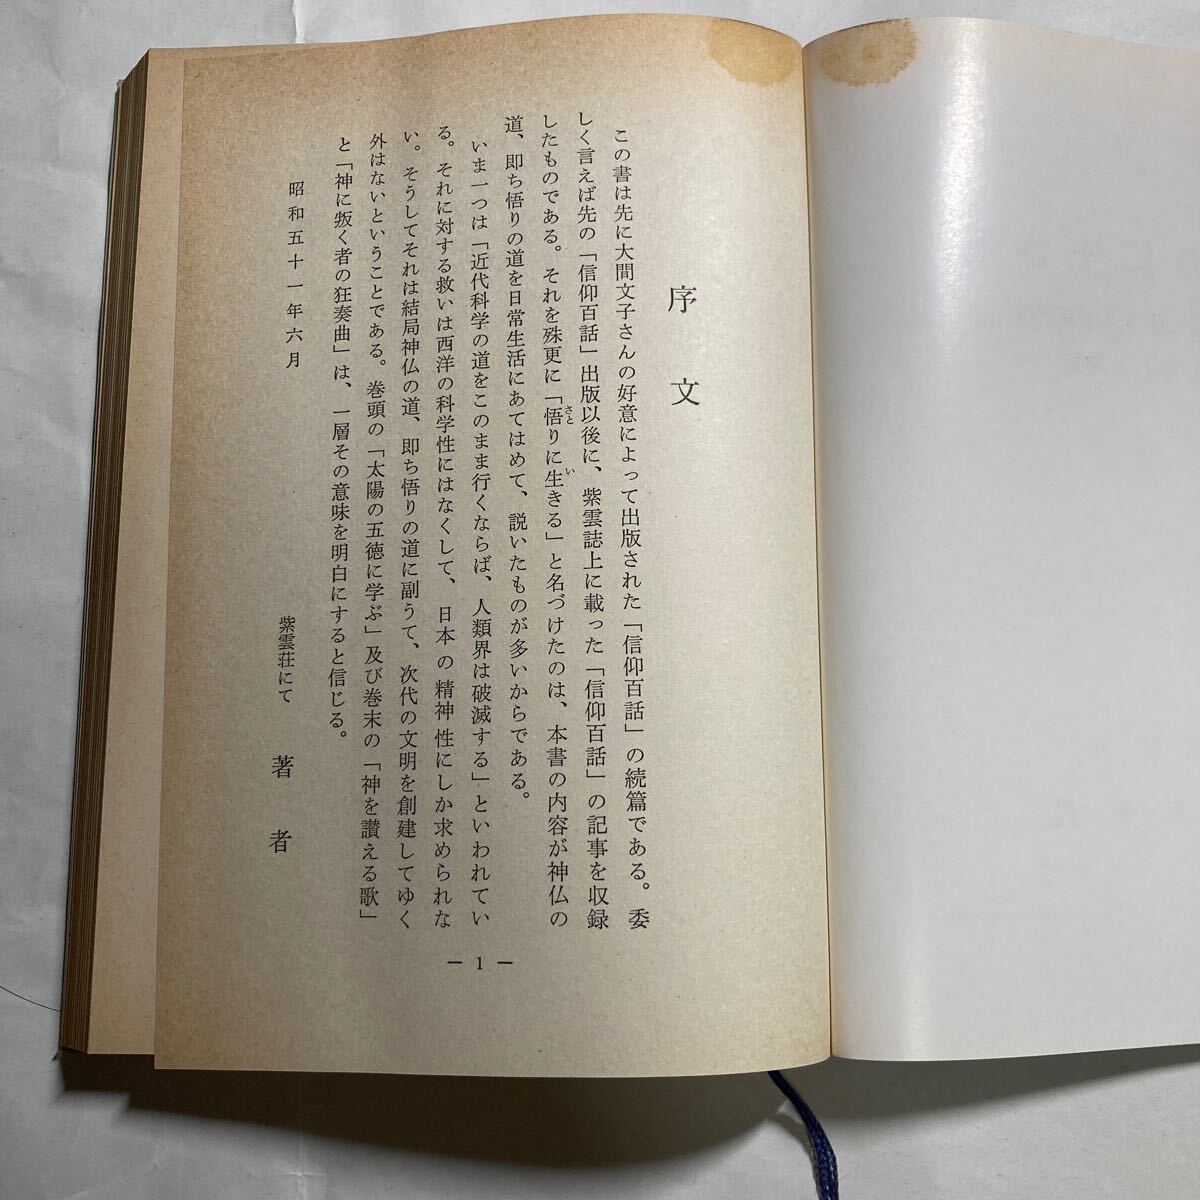 序文
この書は先に大間文子さんの好意によって出版された「信仰百話」の続篇である。委
しく言えば先の「信仰百話」出版以後に、紫雲誌上に載った「信仰百話」の記事を収録
したものである。それを殊更に「悟りに生きる」と名づけたのは、本書の内容が神仏の
さと
い
道、即ち悟りの道を日常生活にあてはめて、説いたものが多いからである。
いま一つは「近代科学の道をこのまま行くならば、人類界は破滅する」といわれてい
る。それに対する救いは西洋の科学性にはなくして、日本の精神性にしか求められな
い。そうしてそれは結局神仏の道、即ち悟りの道に副うて、次代の文明を創建してゆく
外はないということである。巻頭の「太陽の五徳に学ぶ」及び巻末の「神を讃える歌」
と「神に叛く者の狂奏曲」は、一層その意味を明白にすると信じる。
昭和五十一年六月
紫雲荘にて 著者
— 1 —